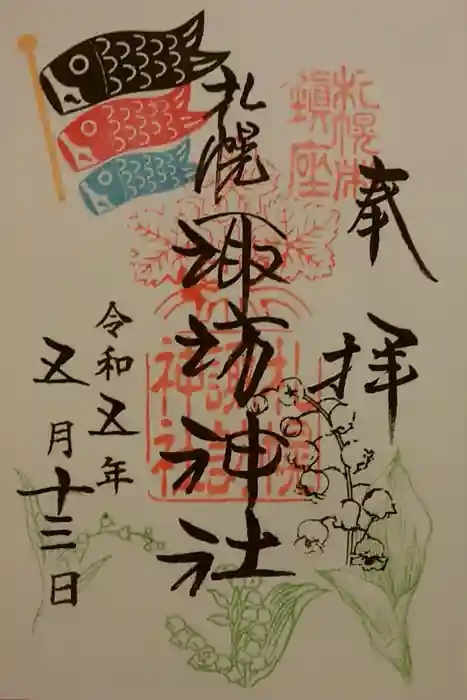 奉拝
札幌市鎮座
札幌
諏訪神社
札幌諏訪神社
令和五年
五月十三日